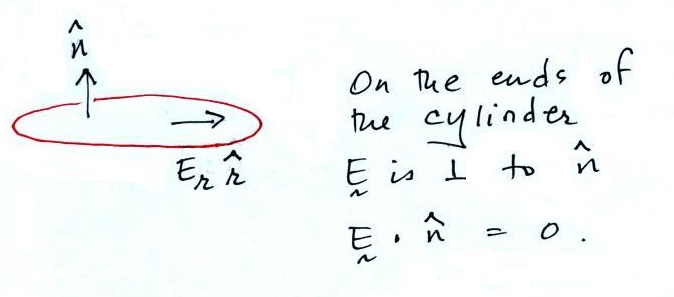 n̂
E_r r̂
On the ends of
the cylinder
Ḛ is ⊥ to n̂
Ḛ . n̂ = 0 .